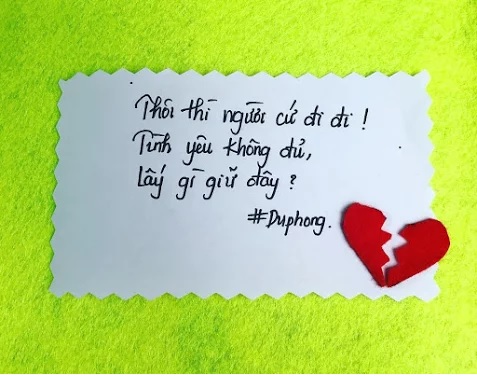 Thôi thì người cứ đi đi !
Tình yêu không đủ,
Lấy gì giữ đây ?
#Duphong.